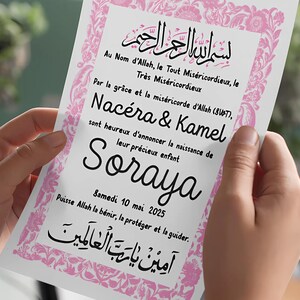 بسم الله الرحمن الرحيم
Au Nom d'Allah, le Tout Miséricordieux, le
Très Miséricordieux
Par la grâce et la miséricorde d'Allah (SWT),
Nacéra & Kamel
sont heureux d'annoncer la naissance de
leur précieux enfant
Soraya
Samedi 10 mai 2025
Puisse Allah la bénir, la protéger et la guider.
آمين يا رب العالمين